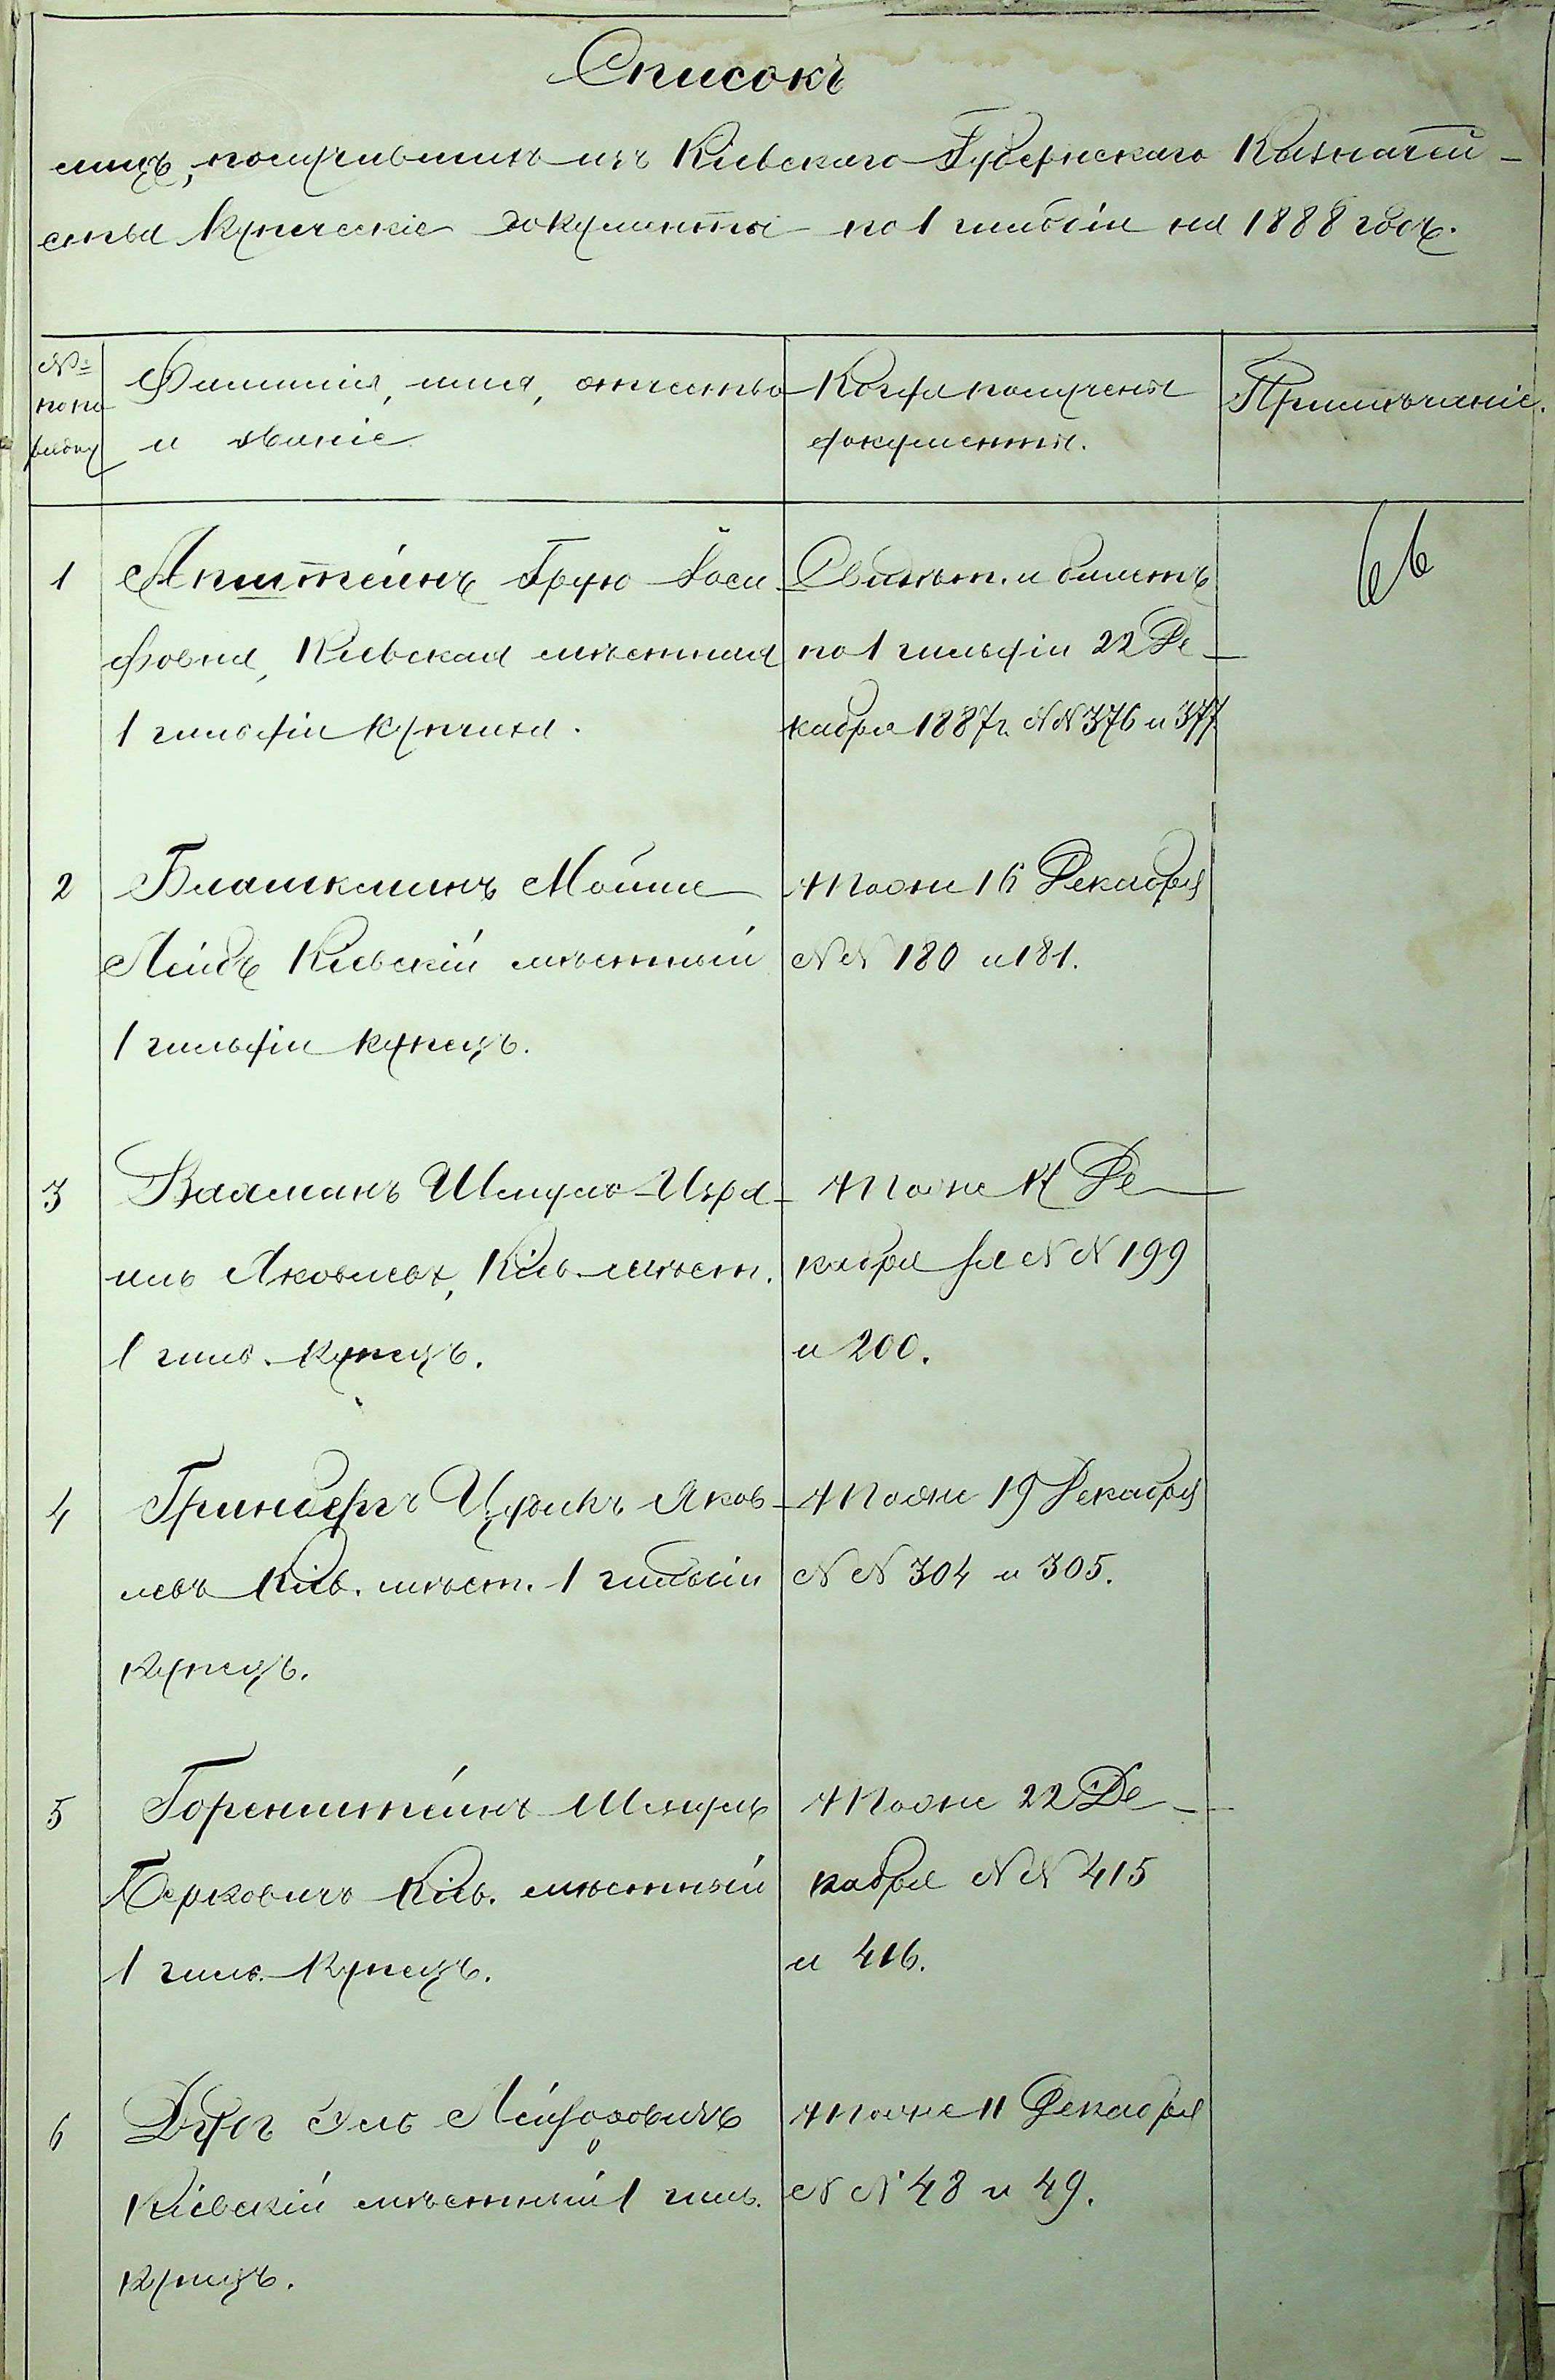 Списокъ
лицъ, получившихъ изъ Кіевскаго Губернскаго Казначей-
ства купеческіе документы по 1 гильдіи на 1888 годъ.
№
по по
рядку
Фамилія, имя, отчество
и званіе
Когда получены
документы.
Примѣчаніе.
1
Апштейнъ Груня Іоси
фовна, Кіевская мѣстная
1 гильдіи купчиха.
Свидѣт. и билетъ
по 1 гильдіи 22 Де-
кабря 1887 г. №№ 376 и 377
2
Блашклинъ Мойше
Лейбъ Кіевскій мѣстный
1 гильдіи купецъ.
Тоже 16 Декабря
№№ 180 и 181.
3
Вайсманъ Шмуль-Изра-
иль Яковлевъ, Кіев. мѣст.
1 гиль. купецъ.
Тоже Де-
кабря за №№ 199
и 200.
4
Гринбергъ Яков-
левъ Кіев. мѣст. 1 гильдіи
купецъ.
Тоже 19 Декабря
№№ 304 и 305.
5
Горенштейнъ Шмуль
Берковичъ Кіев. мѣстный
1 гиль. купецъ.
Тоже 22 Де-
кабря №№ 415
и 416.
6
Лейзоровичъ
Кіевскій мѣстный 1 гиль.
купецъ.
Тоже 11 Декабря
№№ 48 и 49.